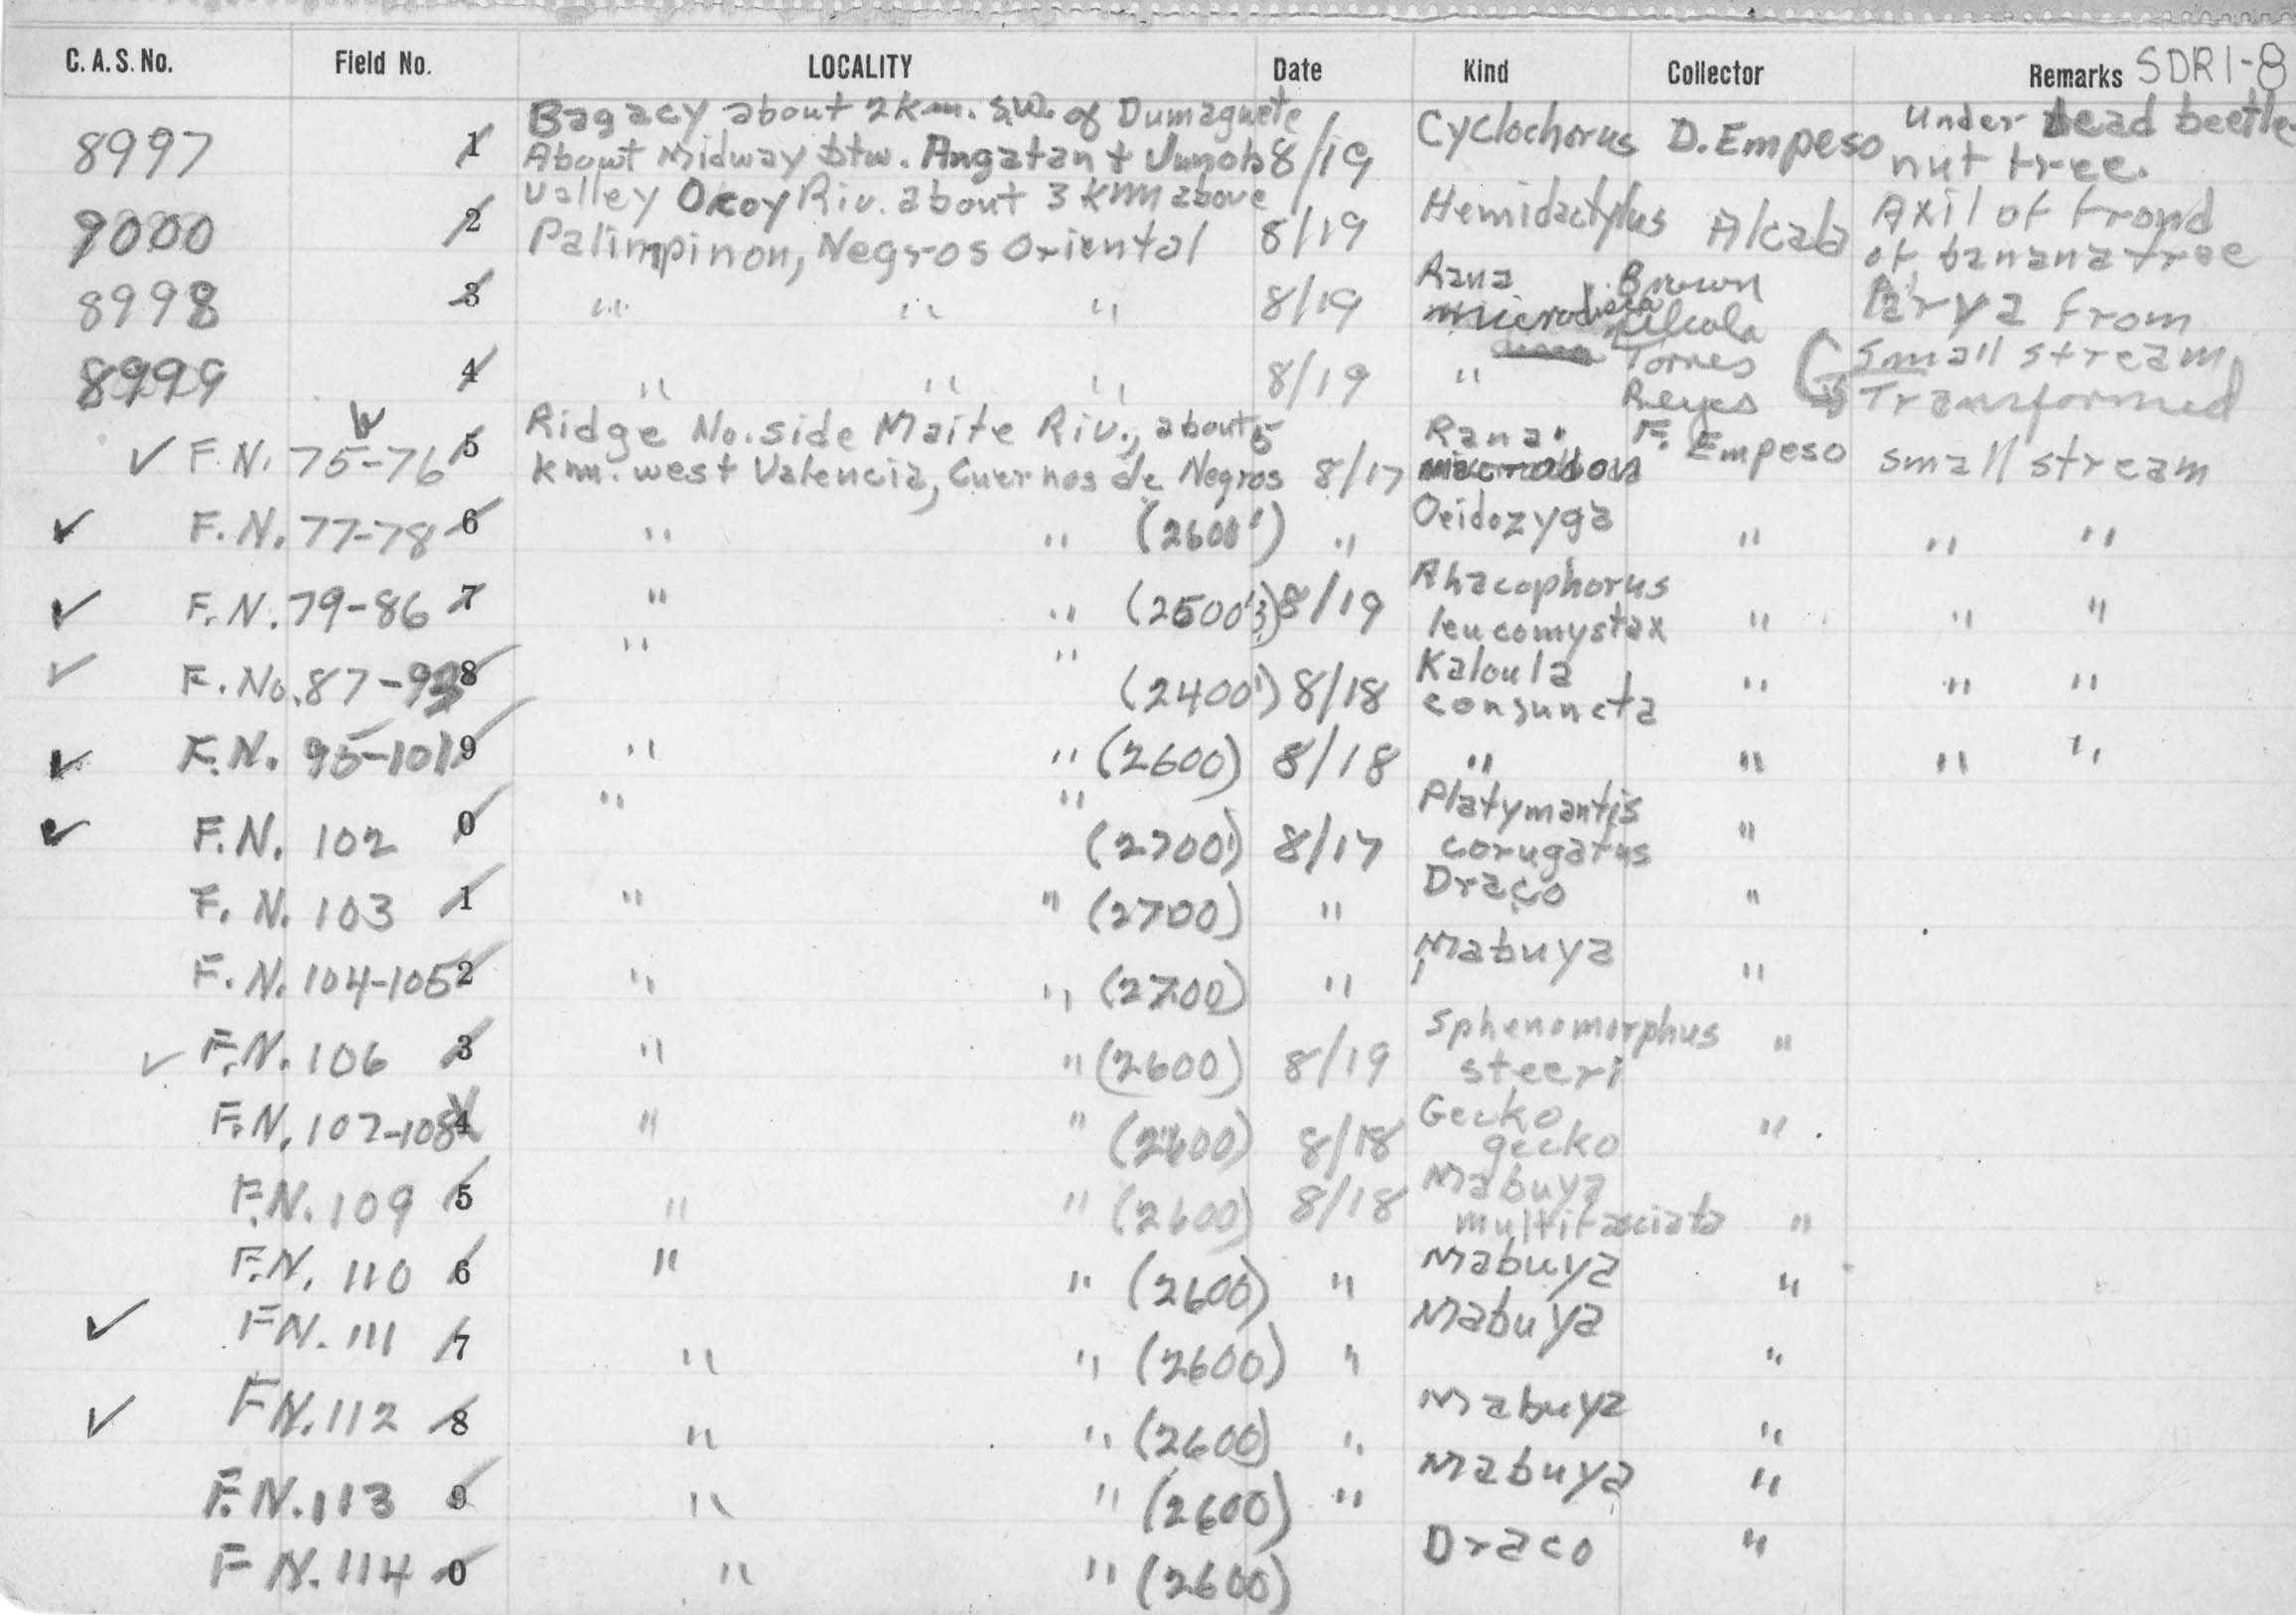 C. A. S. No. Field No. LOCALITY Date Kind Collector Remarks SDR1-8
Bagacy about 2 km. S.W. of Dumaguete
8997 1 About Midway btw. Angatan + 8/19 Cyclochorus D. Empeso Under dead beetle
nut tree.
Valley Okoy Riv. about 3 km above
9000 2 Palimpinon, Negros Oriental 8/19 Hemidactylus Alcala Axil of frond
of banana tree
8998 3 " " " 8/19 Rana Brown Larva from
microdisca Alcala
8999 4 " " " 8/19 " Torres Small stream
Reyes Transformed
Ridge No. side Maite Riv., about 5
✓ F.N. 75-76 5 km. west Valencia, Cuernos de Negros 8/17 Rana F. Empeso small stream
✓ F.N. 77-78 6 " " (2600') " Ooidozyga " " "
✓ F.N. 79-86 7 " " (2500'?) 8/19 Rhacophorus
leucomystax " " "
✓ F.No. 87-93 8 " " (2400') 8/18 Kaloula
conjuncta " " "
✓ F.N. 95-101 9 " " (2600) 8/18 " " " "
✓ F.N. 102 0 " " (2700') 8/17 Platymantis
corugatus "
F.N. 103 1 " " (2700) " Draco "
F.N. 104-105 2 " " (2700) " Mabuya "
✓ F.N. 106 3 " " (2600) 8/19 Sphenomorphus
steeri "
F.N. 107-108 4 " " (2600) 8/18 Gecko
gecko "
F.N. 109 5 " " (2600) 8/18 Mabuya
multifasciata "
F.N. 110 6 " " (2600) " Mabuya "
✓ FN. 111 7 " " (2600) " Mabuya "
✓ FN. 112 8 " " (2600) " Mabuya "
F.N. 113 9 " " (2600) " Mabuya "
FN. 114 0 " " (2600) Draco "